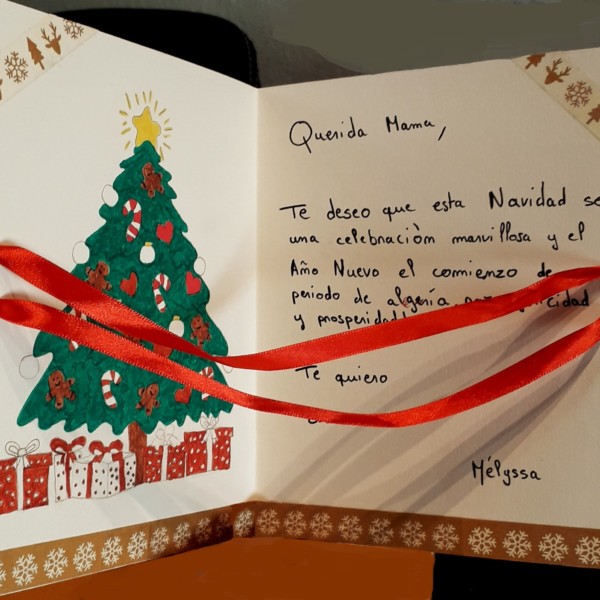 Querida Mama,
Te deseo que esta Navidad
una celebraciòn marvillosa y el
Año Nuevo el comienzo de
periodo de algería
y prosperidad
Te quiero
Mélyssa